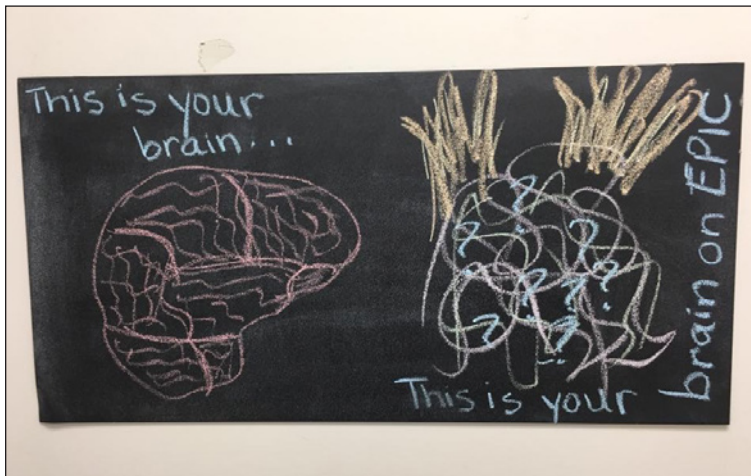 This is your
brain...
? ? ? ? ? ? ? ?
This is your
brain on EPIC